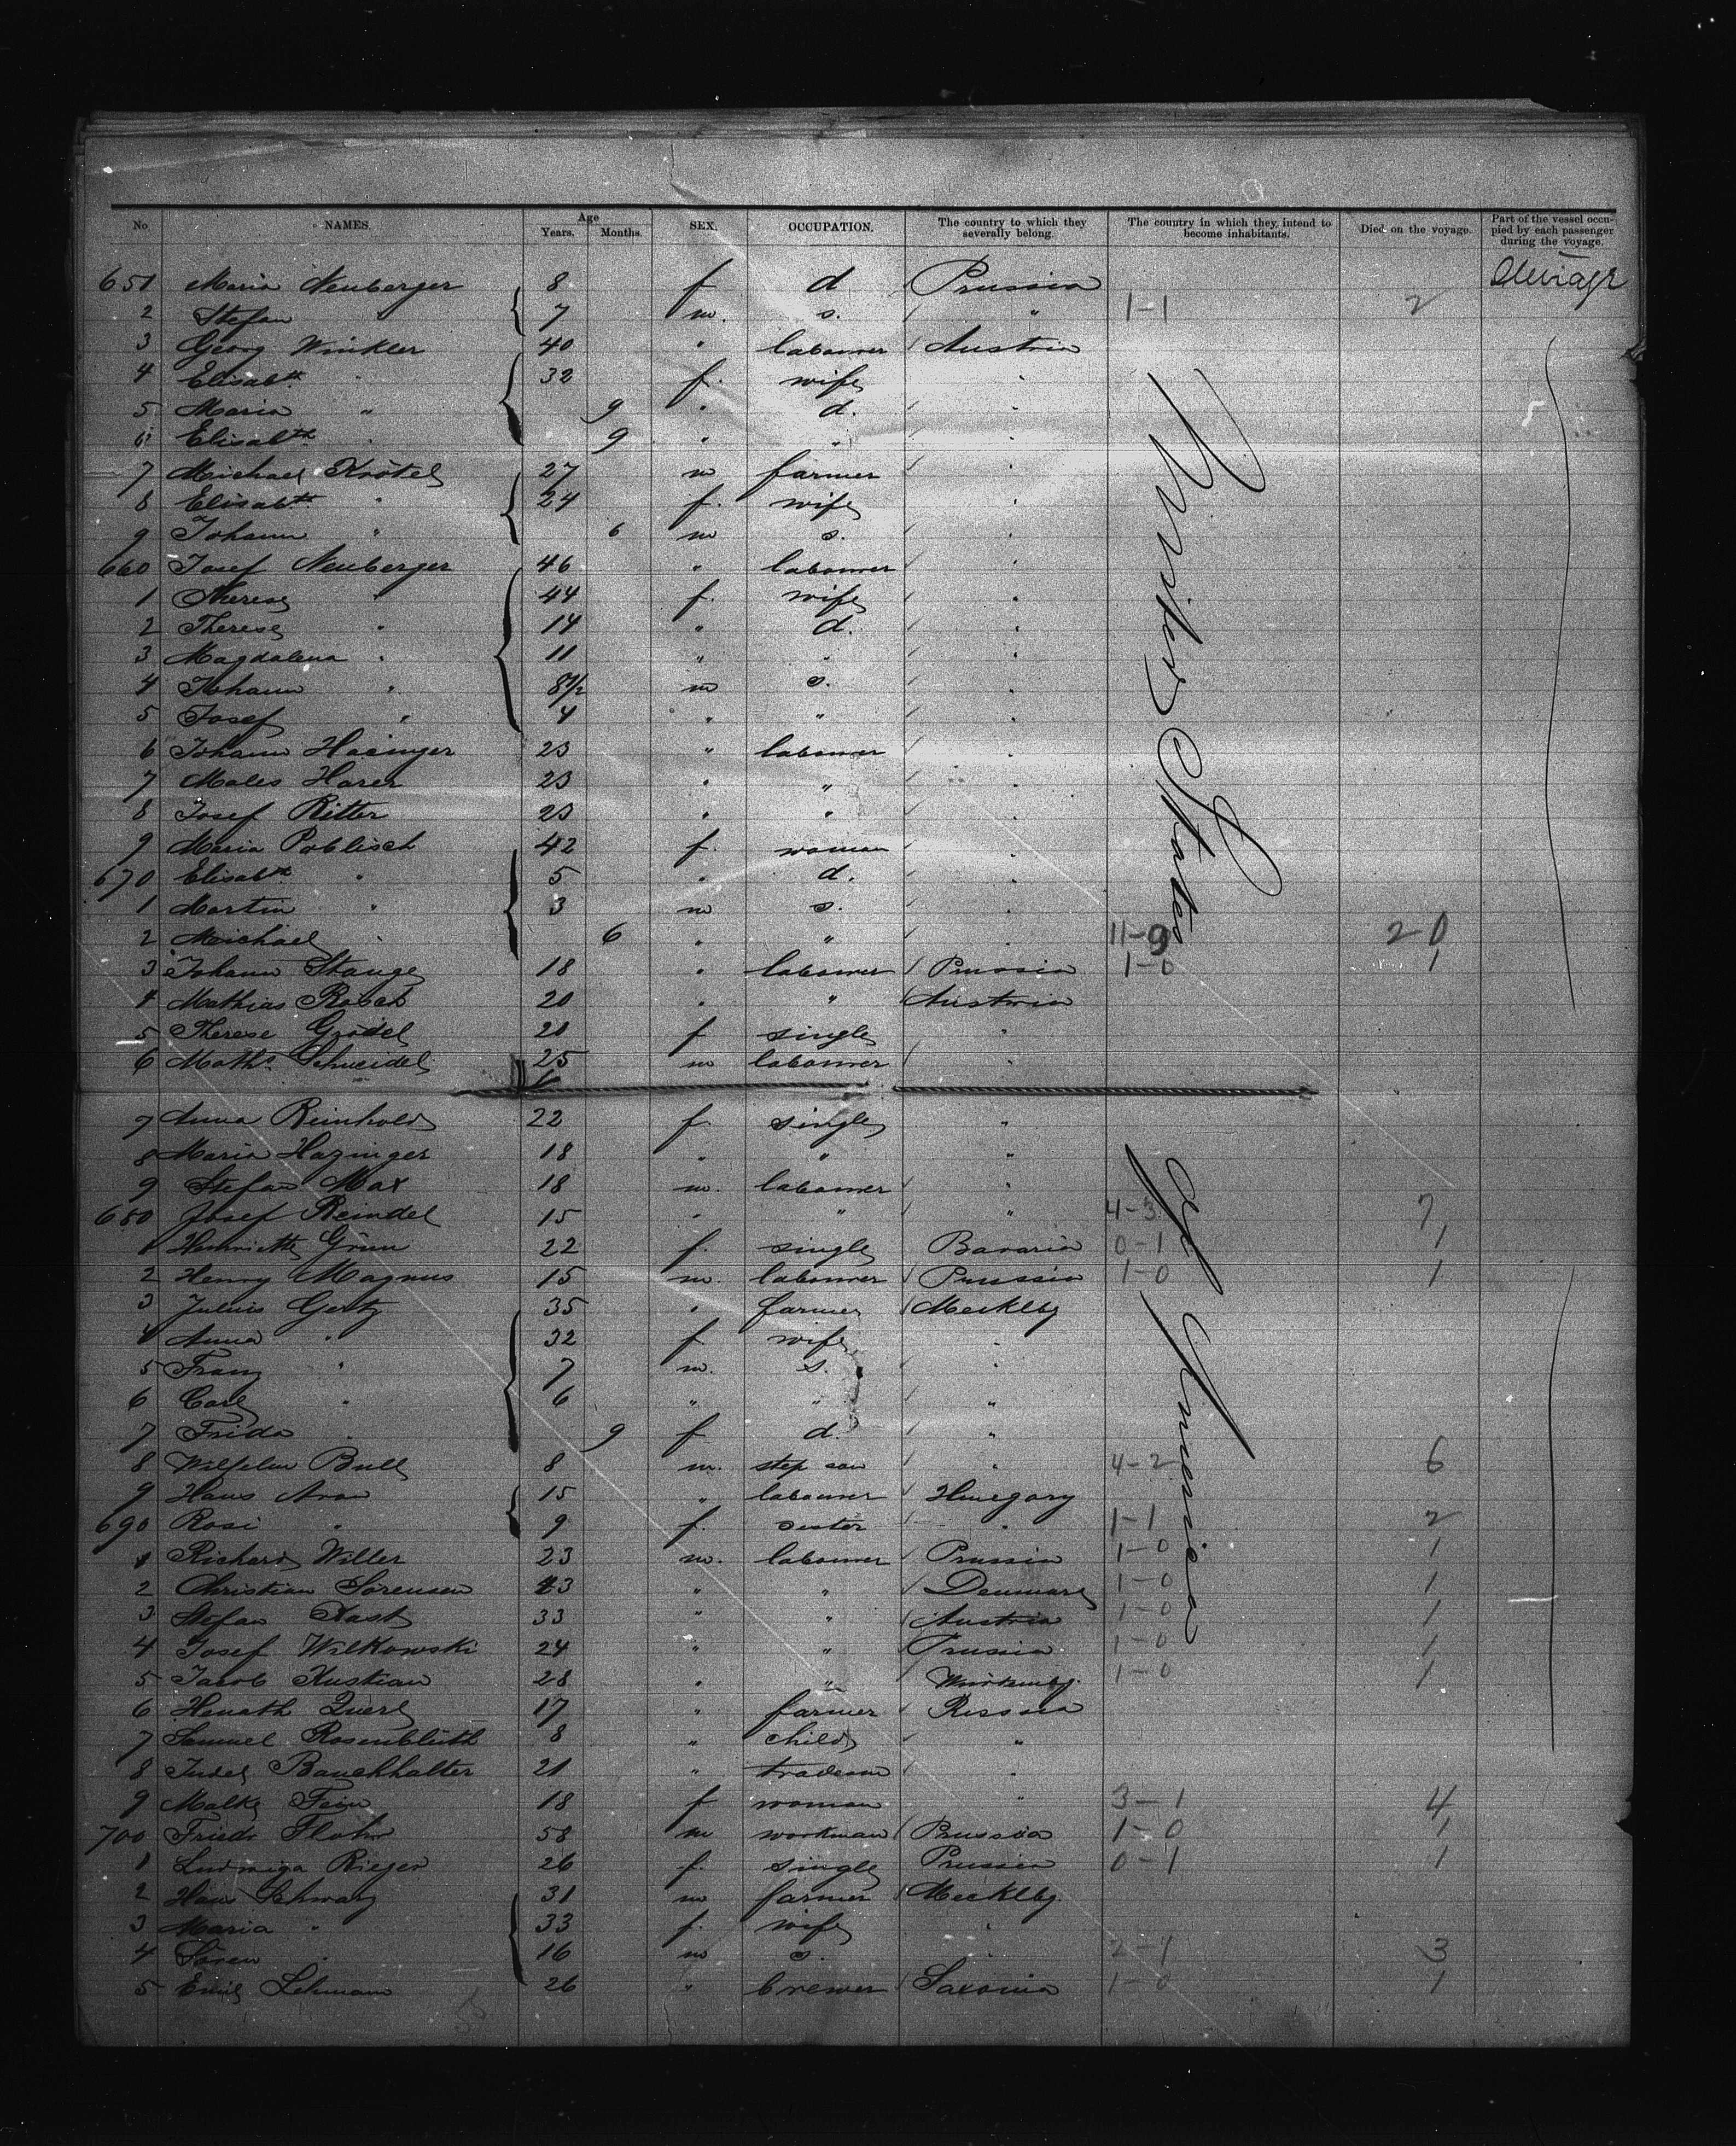 No NAMES. Age Years. Months. SEX. OCCUPATION. The country to which they severally belong. The country in which they intend to become inhabitants. Died on the voyage. Part of the vessel occupied by each passenger during the voyage.
651 Maria Neuberger 8 f d Prussia
2 Stefan " 7 m. s. " 1-1 2
3 Georg Winkler 40 " labourer Austria
4 Elisabth " 32 f. wife "
5 Maria " 9 " d. "
6 Elisabth " 9 " " "
7 Michael Krötel 27 m farmer "
8 Elisabth " 24 f. wife "
9 Johann " 6 m s. "
660 Josef Neuberger 46 " labourer "
1 Therese " 44 f. wife "
2 Therese " 14 " d. "
3 Magdalena " 11 " " "
4 Johann " 8 1/2 m s. "
5 Josef " 4 " " "
6 Johann 23 " labourer "
7 23 " " "
8 Josef Ritter 23 " " "
9 Maria Poblisch 42 f. woman "
670 Elisabth " 5 " d. "
1 Martin " 3 m s. "
2 Michael " 6 " " " 11-9 20
3 Johann Stange 18 " labourer Prussia 1-0 1
4 Mathias 20 " " Austria
5 Therese Grödel 20 f single "
6 Maths Schneidel 25 m labourer "
United States
7 Anna Reinhold 22 f. single "
8 Maria Hazinger 18 " " "
9 Stefan Max 18 m. labourer "
680 Josef Reindel 15 " " " 4-3 7
1 Henriette Grün 22 f. single Bavaria 0-1 1
2 Henry Magnus 15 m. labourer Prussia 1-0 1
3 Julius Gertz 35 " farmer Mecklbg
4 Anna " 32 f wife "
5 Franz " 7 m. s. "
6 Carl " 6 " " "
7 Frida " 9 f d. "
8 Wilhelm Bull 8 m. step son " 4-2 6
9 Hans Aron 15 " labourer Hungary
690 Rosi " 9 f. sister " 1-1 2
1 Richard Willer 23 m. labourer Prussia 1-0 1
2 Christian Sorensen 23 " " Denmark 1-0 1
3 Stefan Kast 33 " " Austria 1-0 1
4 Josef Wilkowski 24 " " Prussia 1-0 1
5 Jacob Kustian 28 " " 1-0 1
6 17 " farmer Russia
7 Samuel Rosenblüth 8 " child "
8 Judel Bauchhalter 21 " "
9 Malke Fein 18 f woman " 3-1 4
700 Friedr 58 m workman Prussia 1-0 1
1 Ludwiga Rieger 26 f. single Prussia 0-1 1
2 Hans Schwarz 31 m farmer Mecklbg.
3 Maria " 33 f. wife "
4 Sören " 16 m s. " 2-1 3
5 Emil Lehmann 26 " brewer Saxonia 1-0 1
of America